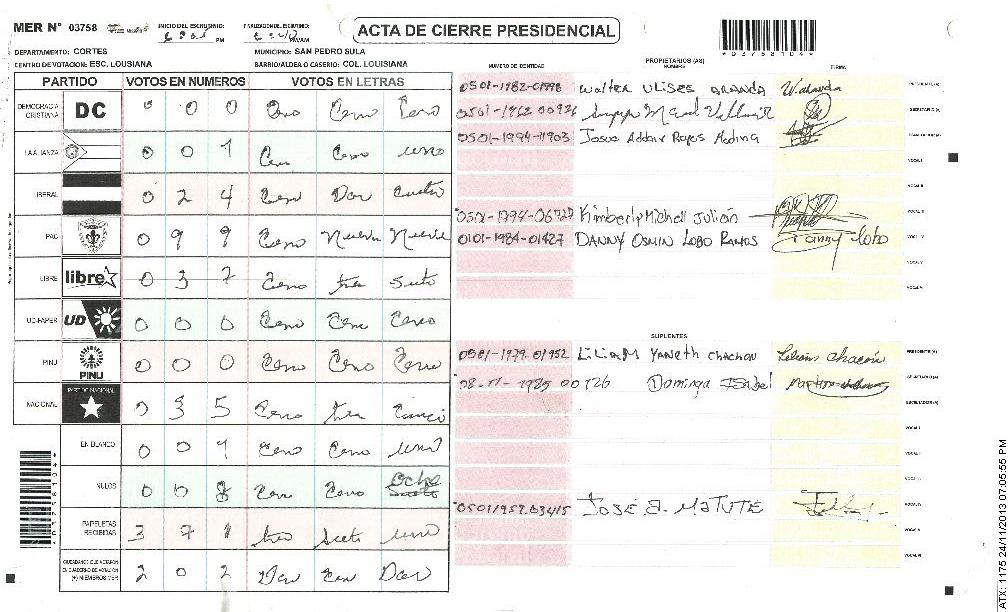 MER N° 03758 INICIO DEL ESCRUTINIO: PM FINALIZACION DEL ESCRUTINIO: PM/AM
ACTA DE CIERRE PRESIDENCIAL
DEPARTAMENTO: CORTES MUNICIPIO: SAN PEDRO SULA
CENTRO DE VOTACION: ESC. LOUSIANA BARRIO/ALDEA O CASERIO: COL. LOUISIANA
PARTIDO VOTOS EN NUMEROS VOTOS EN LETRAS
DEMOCRACIA CRISTIANA DC 0 0 0 Cero Cero Cero
LA ALIANZA 0 0 1 Cero Cero uno
LIBERAL 0 2 4 Cero Dos Cuatro
PAC 0 9 9 Cero Nueve Nueve
LIBRE libre 0 3 7 Cero tres Siete
UD-FAPER UD 0 0 0 Cero Cero Cero
PINU PINU 0 0 0 Cero Cero Cero
NACIONAL PARTIDO NACIONAL 0 3 5 Cero tres Cinco
EN BLANCO 0 0 1 Cero Cero uno
NULOS 0 0 8 Cero Cero Ocho
PAPELETAS RECIBIDAS 3 7 1 tres Siete uno
CIUDADANOS QUE VOTARON EN CUADERNO DE VOTACION (+) MIEMBROS MER 2 0 2 Dos Cero Dos
PROPIETARIOS (AS)
NUMERO DE IDENTIDAD NOMBRE FIRMA
0501-1982-01998 Walter Ulises Aranda W. aranda PRESIDENTE (A)
0501-1962 00926 SECRETARIO (A)
0501-1994-11903 Josue Rojas Medina
VOCAL I
VOCAL II
0501-1994-06727 Kimberly Michell Julián
0101-1984-01427 DANNY OSMIN LOBO RAMOS Danny lobo
VOCAL V
SUPLENTES
0501-1979-01952 LILIAM YANETH CHACHON Liliam chacon PRESIDENTE (A)
1985 00726 Dominga Isabel SECRETARIO (A)
ESCRUTADOR (A)
VOCAL I
0501195703415 JOSÉ B. MATUTE
*03758104*
ATX: 1175 24/11/2013 07:05:55 PM